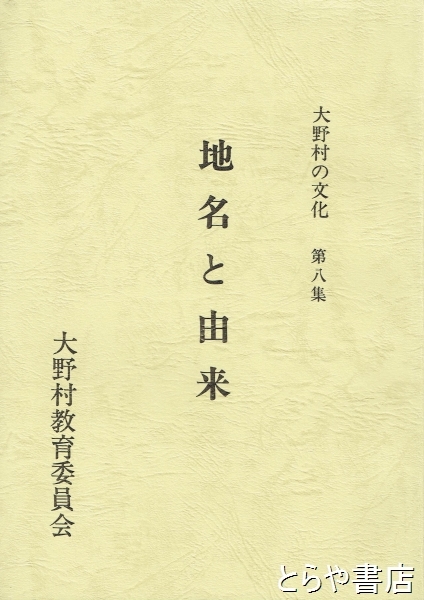 大野村の文化 第八集
地名と由来
大野村教育委員会
とらや書店